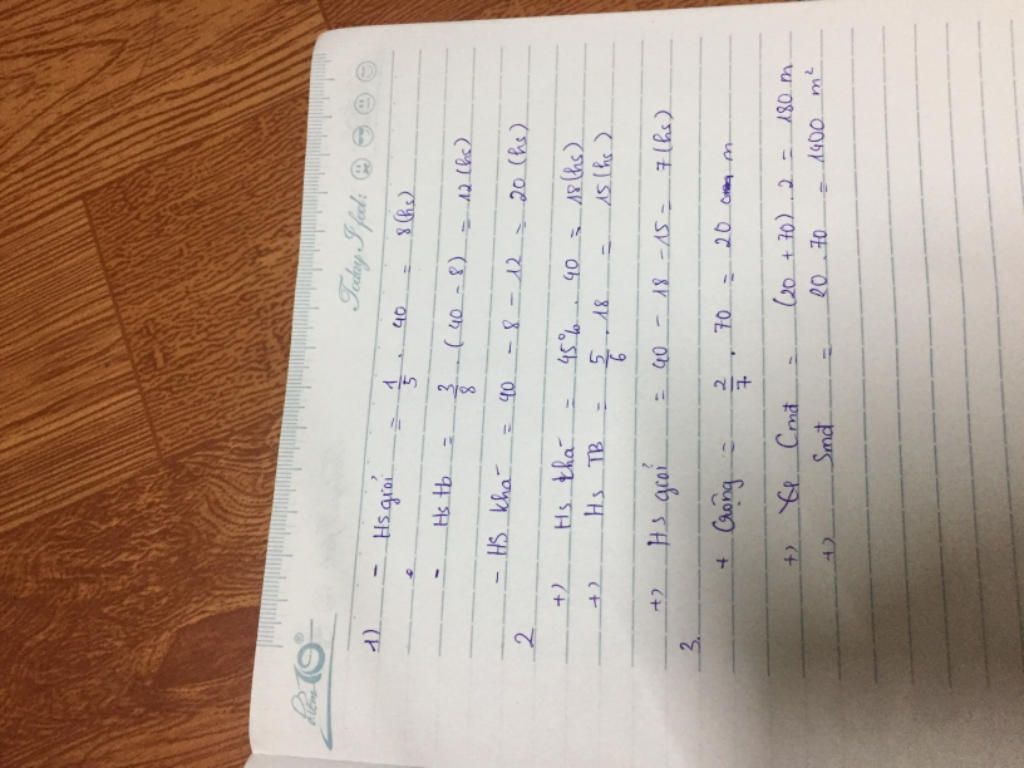 Today, I feel:
1) - Hs giỏi = 1/5 . 40 = 8 (hs)
- Hs tb = 3/8 . (40 - 8) = 12 (hs)
- HS khá = 40 - 8 - 12 = 20 (hs)
2
+) Hs khá = 45% . 40 = 18 (hs)
+) Hs TB = 5/6 . 18 = 15 (hs)
+) Hs giỏi = 40 - 18 - 15 = 7 (hs)
3.
+ Crộng = 2/7 . 70 = 20 m
+) Cmđ = (20 + 70) . 2 = 180 m
+) Smđ = 20 . 70 = 1400 m²